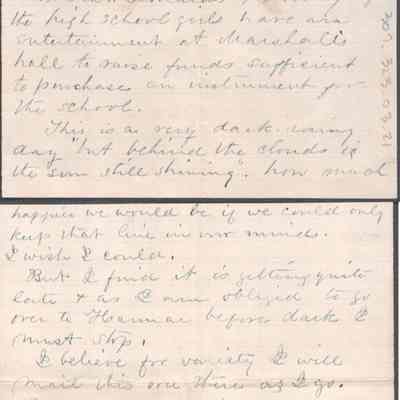 the high school girls have an
entertainment at Marshall's
hall to raise funds sufficient
to purchase an instrument for
the school.
This is a very dark rainy
day "but behind the clouds is
the sun still shining". how much
happier we would be if we could only
keep that line in our minds.
I wish I could.
But I find it is getting quite
late & as I am obliged to go
over to Hannar before dark I
must stop.
I believe for variety I will
mail this one there as I go.